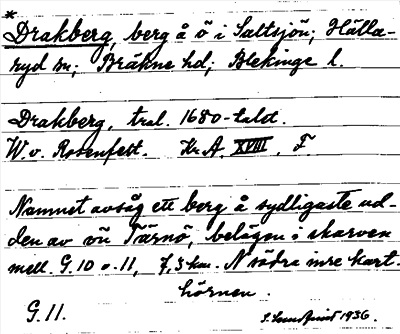 *
Drakberg, berg å ö i Saltsjön; Hälla-
ryd sn; Bräkne hd; Blekinge l.
Drakberg, tral. 1680-talet.
W. v. Rosenfest. Kr. A. XVIII, F
Namnet avsåg ett berg å sydligaste ud-
den av ön Tärnö, belägen i skarven
mell. G. 10 o. 11, 7,3 km. N södra inre kart-
hörnen.
G. 11. 1936.